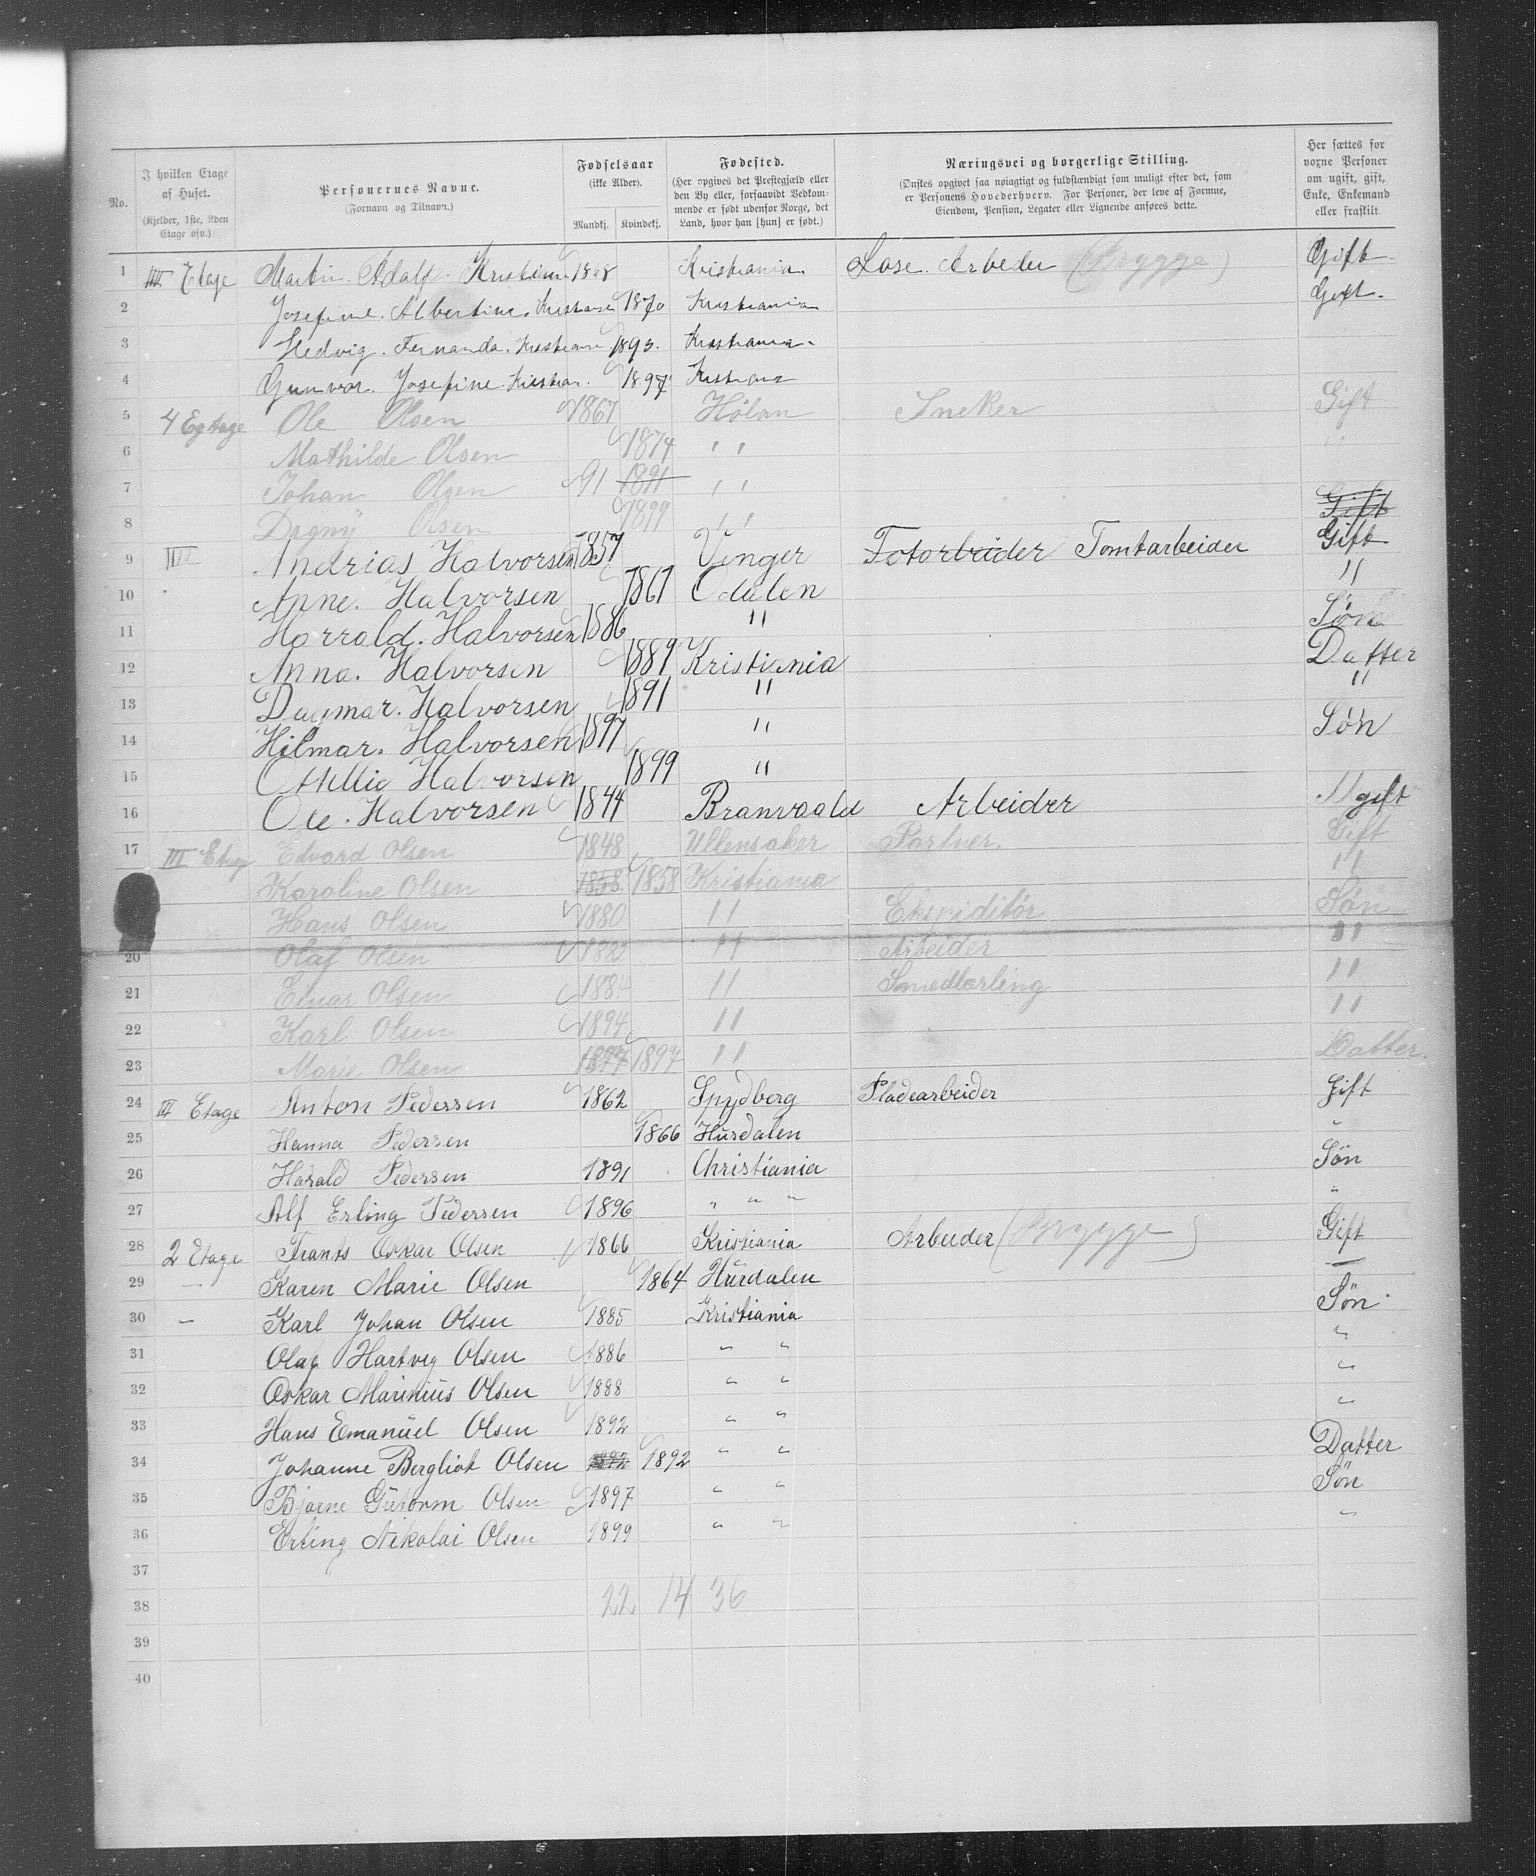 No.
I hvilken Etage af Huset. (Kjelder, 1ste, 2den Etage osv.)
Personernes Navne. (Fornavn og Tilnavn.)
Fødselsaar (ikke Alder). Mandkj. Kvindekj.
Fødested. (Her opgives det Prestegjæld eller den By eller, forsaavidt Vedkommende er født udenfor Norge, det Land, hvor han [hun] er født.)
Næringsvei og borgerlige Stilling. (Ønskes opgivet saa nøiagtigt og fuldstændigt som muligt efter det, som er Personens Hovederhverv. For Personer, der leve af Formue, Eiendom, Pension, Legater eller Lignende anføres dette.
Her sættes for voxne Personer om ugift, gift, Enke, Enkemand eller fraskilt
1 IIII Etage Martin Adolf 1868 Kristiania Løse Arbeder (Brygge) Gift
2 Josefine Albertine 1870 Kristiania Gift
3 Hedvig Fernanda 1893 Kristiania
4 Gunvor Josefine Kristian 1897 Kristiania
5 4 Egtage Ole Olsen 1867 Hølan Sneker Gift
6 Mathilde Olsen 1874 " "
7 Johan Olsen 91 1891 " "
8 Dagny Olsen 1899 " " Gift
9 III Andrias Halvorsen 1857 Vinger Fotarbeider Tomtarbeider Gift
10 Anne Halvorsen 1867 Odalen "
11 Harrald Halvorsen 1886 " Søn
12 Anna Halvorsen 1889 Kristiania Datter
13 Dagmar Halvorsen 1891 " "
14 Hilmar Halvorsen 1897 " Søn
15 Ottillie Halvorsen 1899 "
16 Ole Halvorsen 1844 Branvaald Arbeider Ugift
17 III Etage Edvard Olsen 1848 Ullensaker Portner Gift
Karoline Olsen 1858 1858 Kristiania "
Hans Olsen 1880 " Ekspiditør Søn
20 Olaf Olsen 1882 " Arbeider "
21 Einar Olsen 1884 " Smedlærling "
22 Karl Olsen 1894 " "
23 Marie Olsen 1897 1897 " Datter
24 IV Etage Anton Pedersen 1862 Spydberg Pladearbeider Gift
25 Hanna Pedersen 1866 Hurdalen "
26 Harald Pedersen 1891 Christiania Søn
27 Alf Erling Pedersen 1896 " " " "
28 2 Etage Frants Oskar Olsen 1866 Kristiania Arbeider (Brygge) Gift
29 – Karen Marie Olsen 1864 Hurdalen –
30 – Karl Johan Olsen 1885 Kristiania Søn
31 Olaf Hartvig Olsen 1886 " " "
32 Oskar Marinius Olsen 1888 " " "
33 Hans Emanuel Olsen 1892 " " "
34 Johanne Bergliot Olsen 1892 1892 " " Datter
35 Bjarne Gutorm Olsen 1897 " " Søn
36 Erling Nikolai Olsen 1899 " " "
37
38 22 14 36
39
40